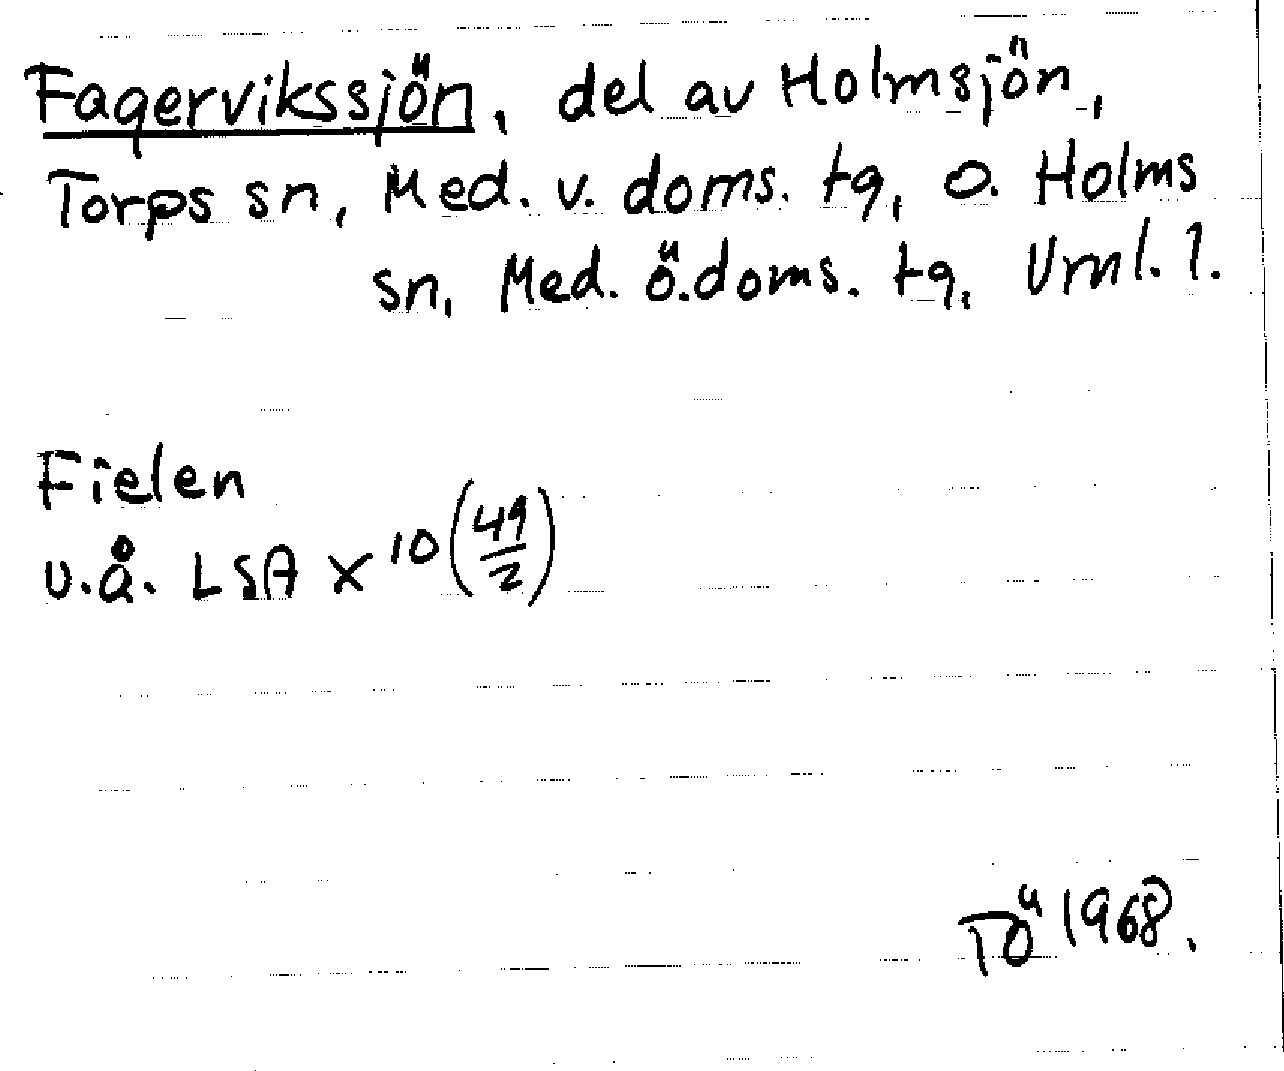 Fagervikssjön, del av Holmsjön,
Torps sn, Med. v. doms. tg, o. Holms
sn, Med. ö. doms. tg, Vrnl. l.
Fielen
u.å. LSA X 10 (49/2)
TÖ 1968.